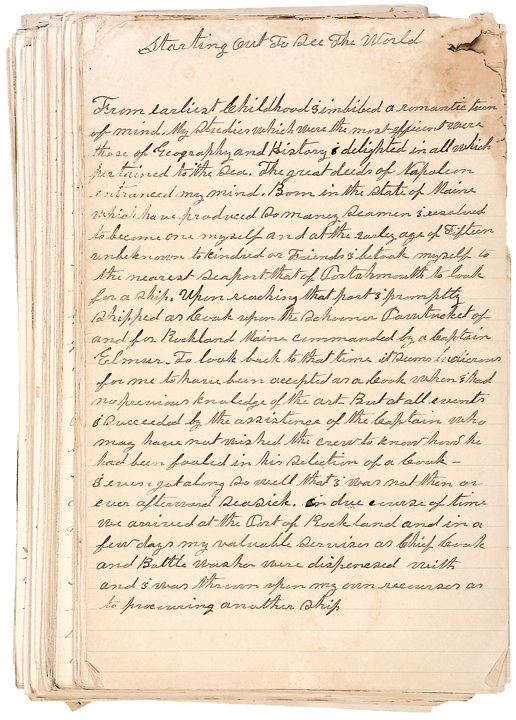 Starting Out To See The World
From earliest Childhood I imbibed a romantic turn
of mind. My Studies which were the most efficient were
those of Geography and History I delighted in all which
pertained to the Sea. The great deeds of Napoleon
entranced my mind. Born in the State of Maine
which have produced so many seamen I resolved
to become one myself and at the early age of Fifteen
unbeknown to kindred or Friends I betook myself to
the nearest Seaport that of Portshmouth to look
for a ship. Upon reaching that port I promptly
shipped as Cook upon the Schooner Pawtucket of
and for Rockland Maine commanded by a Captain
To look back to that time it seems
for me to have been accepted as a Cook when I had
no previous knowledge of the art But at all events
I succeeded by the assistence of the Captain who
may have not wished the crew to know how he
had been fooled in his selection of a Cook –
I even got along so well that I was not then or
ever afterward seasick. In due course of time
we arrived at the Port of Rockland and in a
few days my valuable servises as Chief Cook
and Bottle washer were dispensed with
and I was thrown upon my own recourses as
to procuring another ship